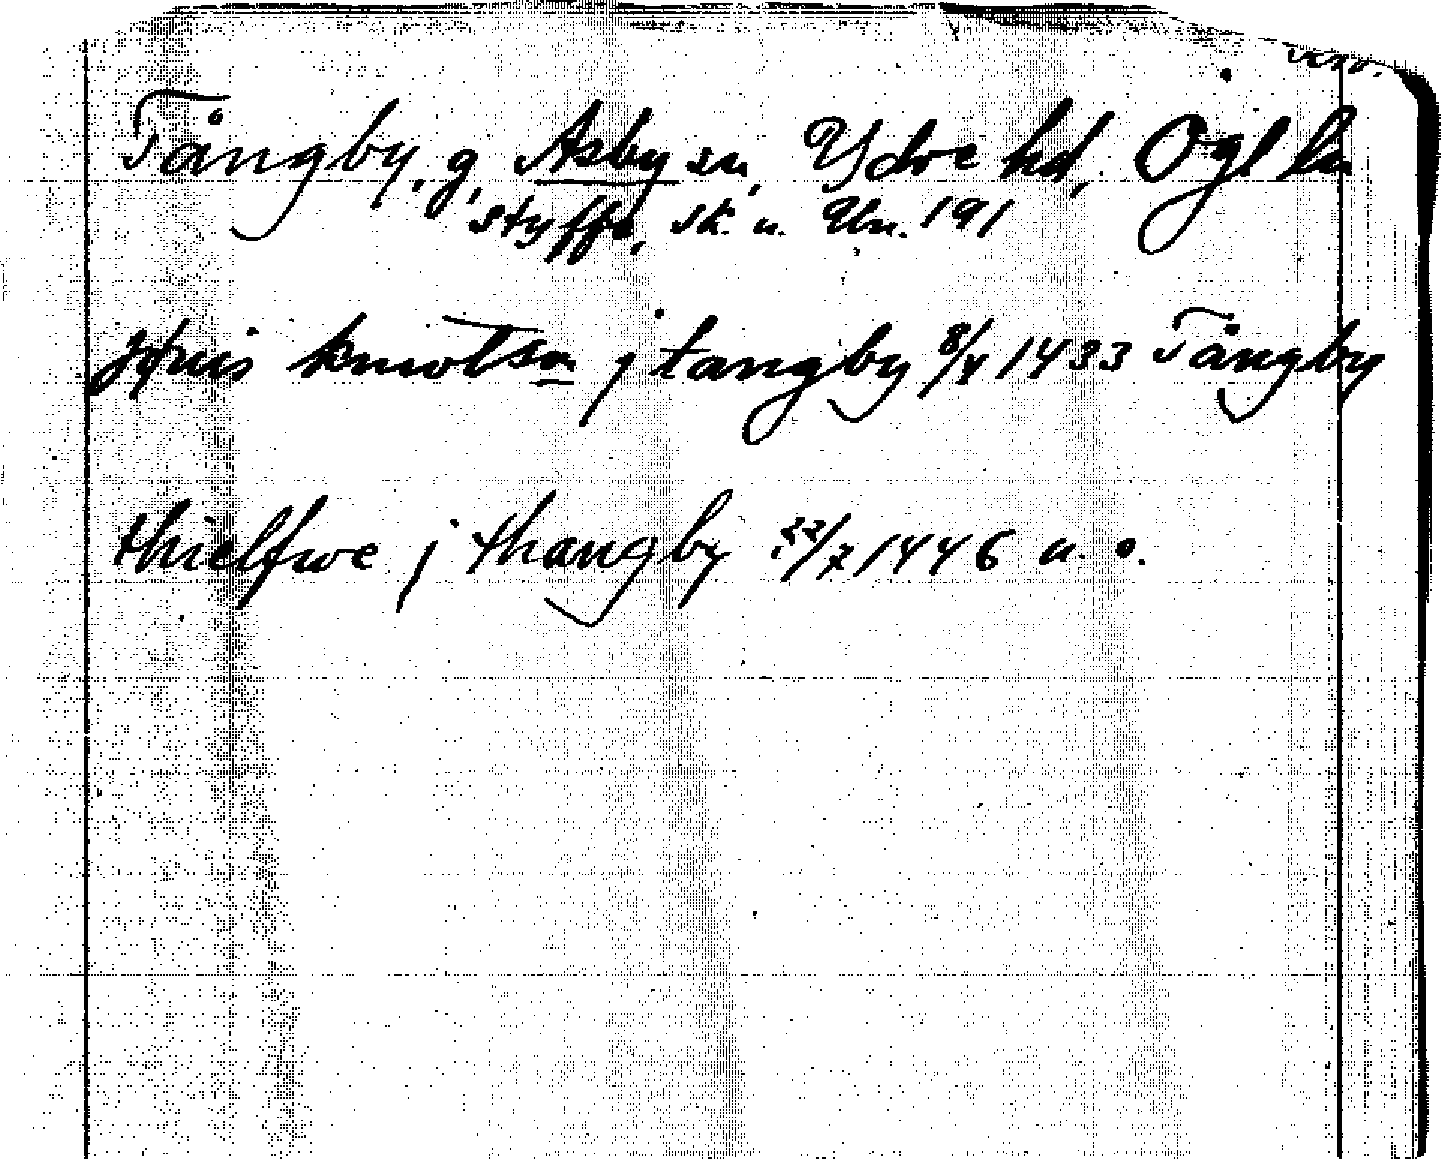 verso.
Tångby, g, Asby sn, Ydre hd, Ögl län
Styffe, Sk. u. Un. 191
knwtson j tangby 8/4 1433 Tångby
thielfwe j thangby 22/7 1446 u. o.